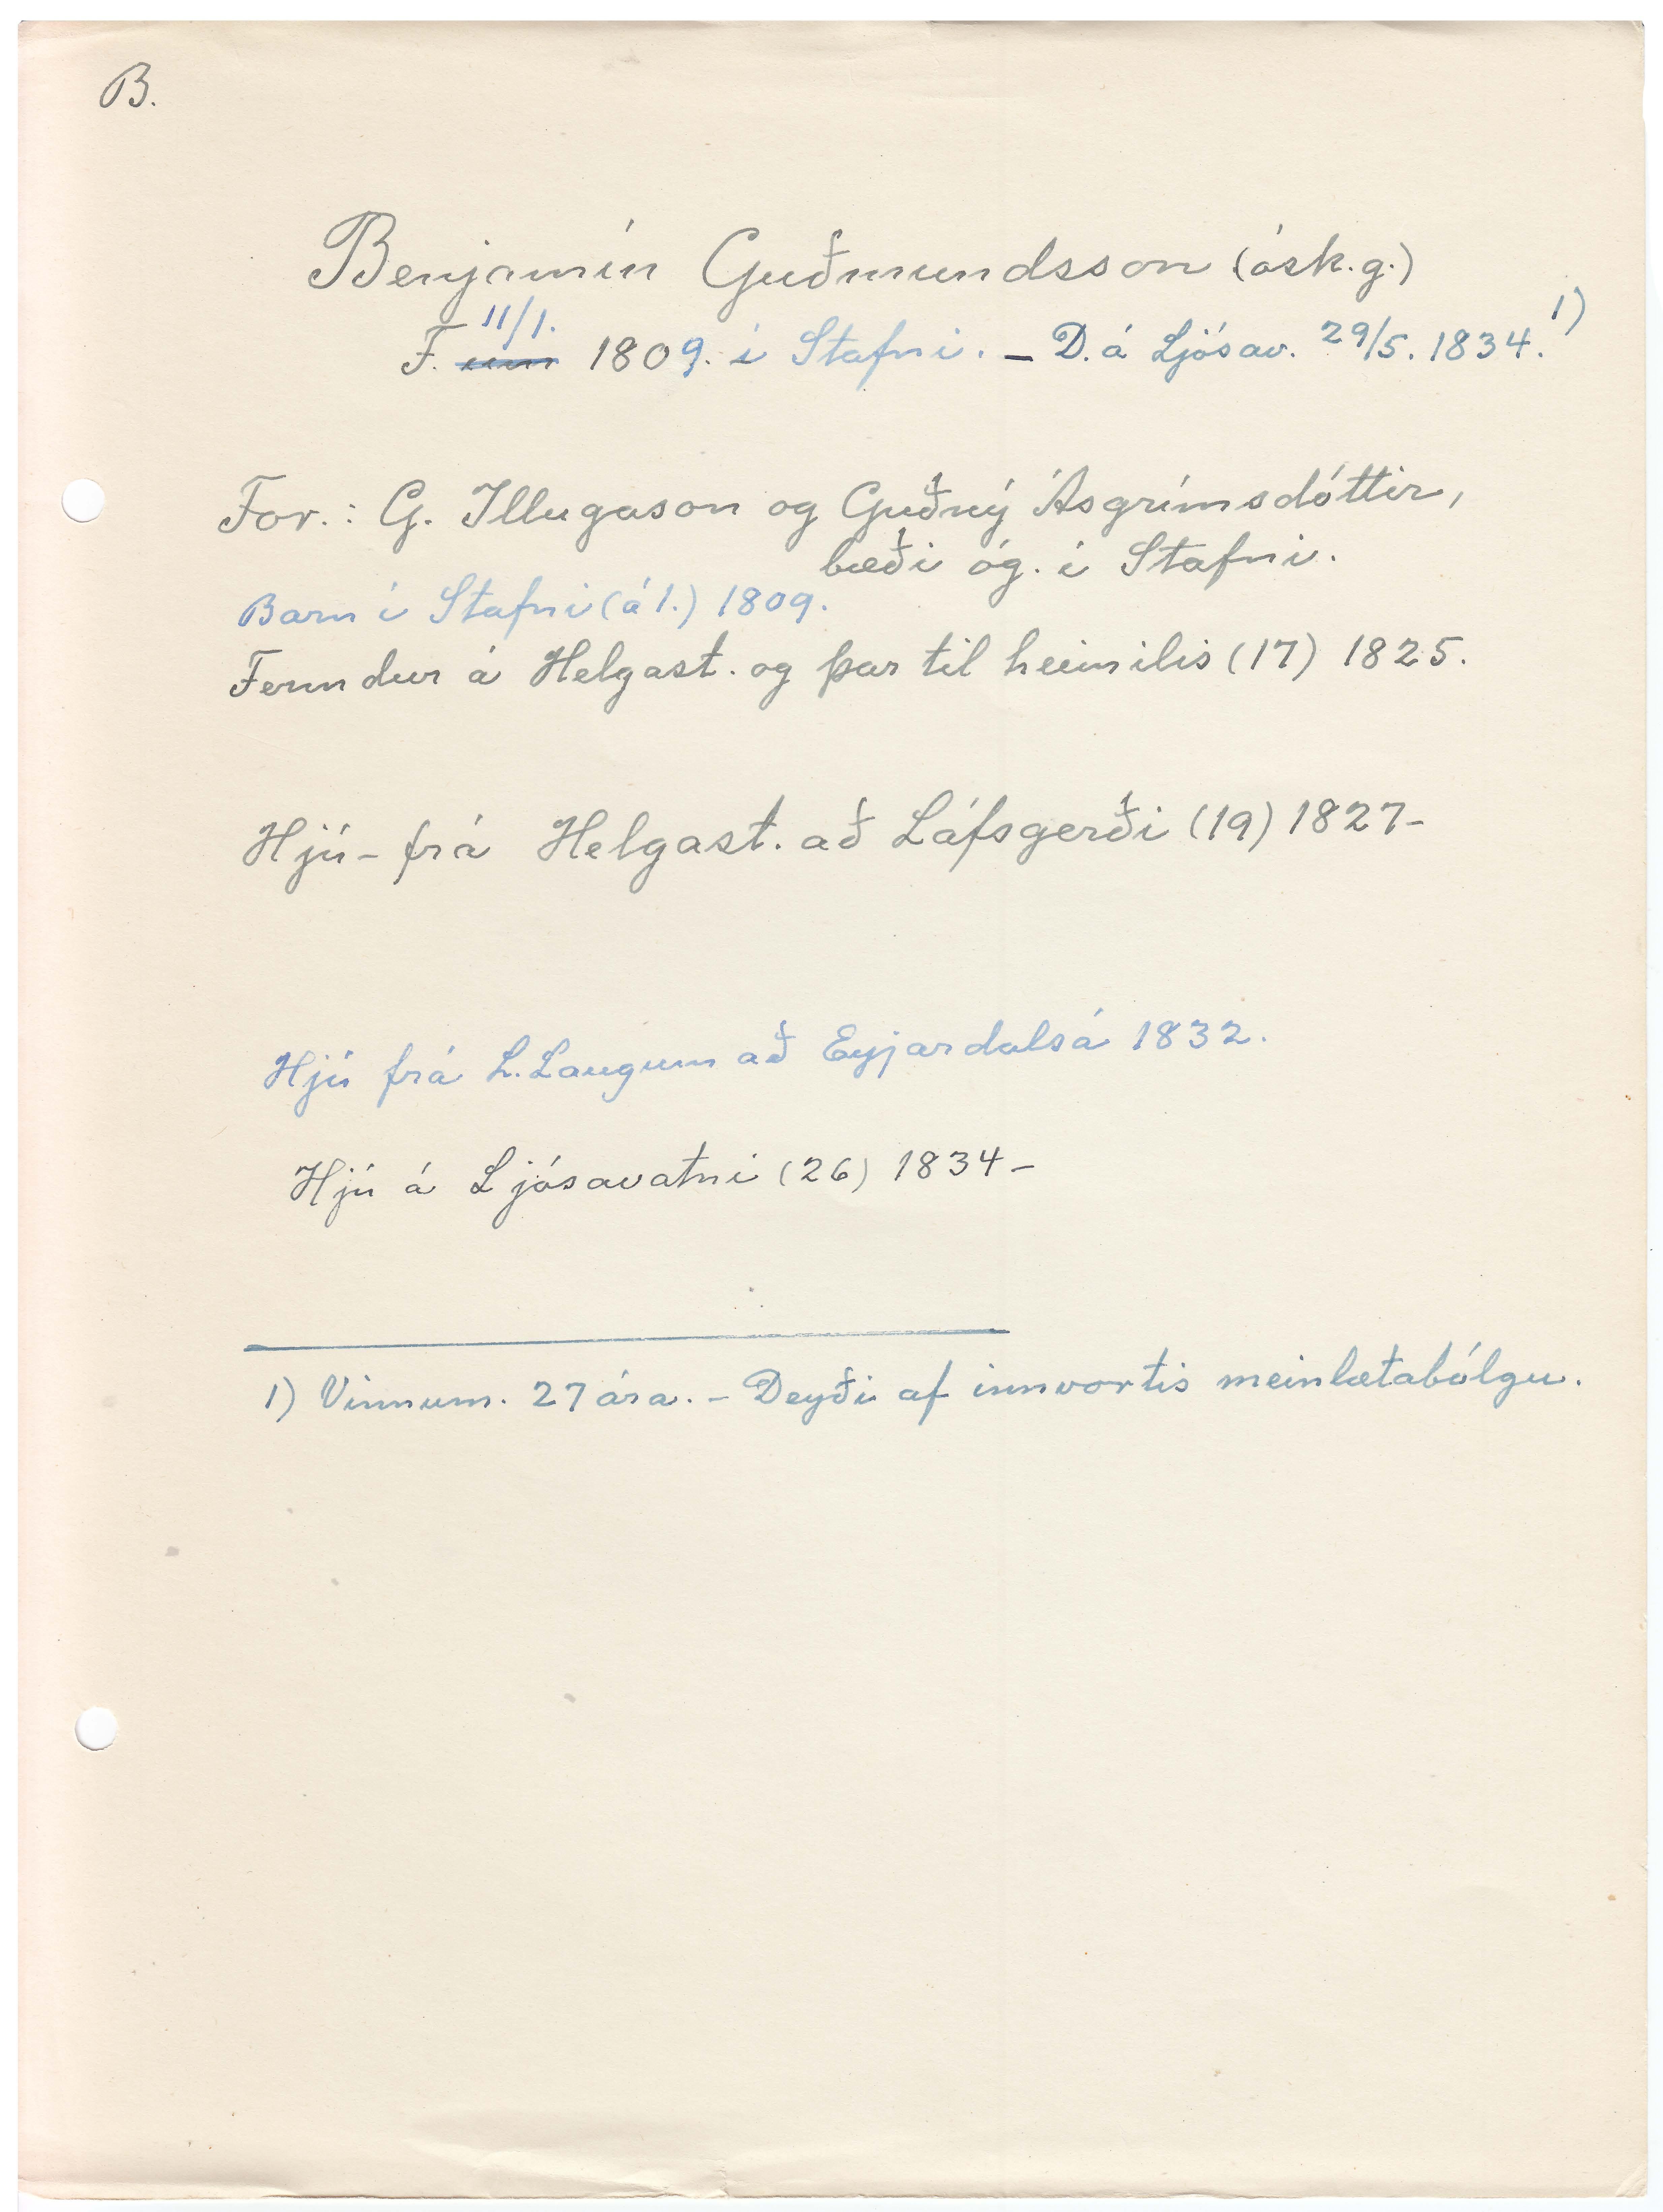 B.
Benjamín Guðmundsson (ósk.g.)
11/1.
F. um 1809. í Stafni. – D. á Ljósav. 29/5. 1834. 1)
For.: G. Illugason og Guðný Ásgrímsdóttir,
bæði óg. í Stafni.
Barn í Stafni (á 1.) 1809.
Fermdur á Helgast. og þar til heimilis (17) 1825.
Hjú – frá Helgast. að Láfsgerði (19) 1827–
Hjú frá L. Laugum að Eyjardalsá 1832.
Hjú á Ljósavatni (26) 1834–
1) Vinnum. 27 ára. – Deyði af innvortis meinlætabólgu.